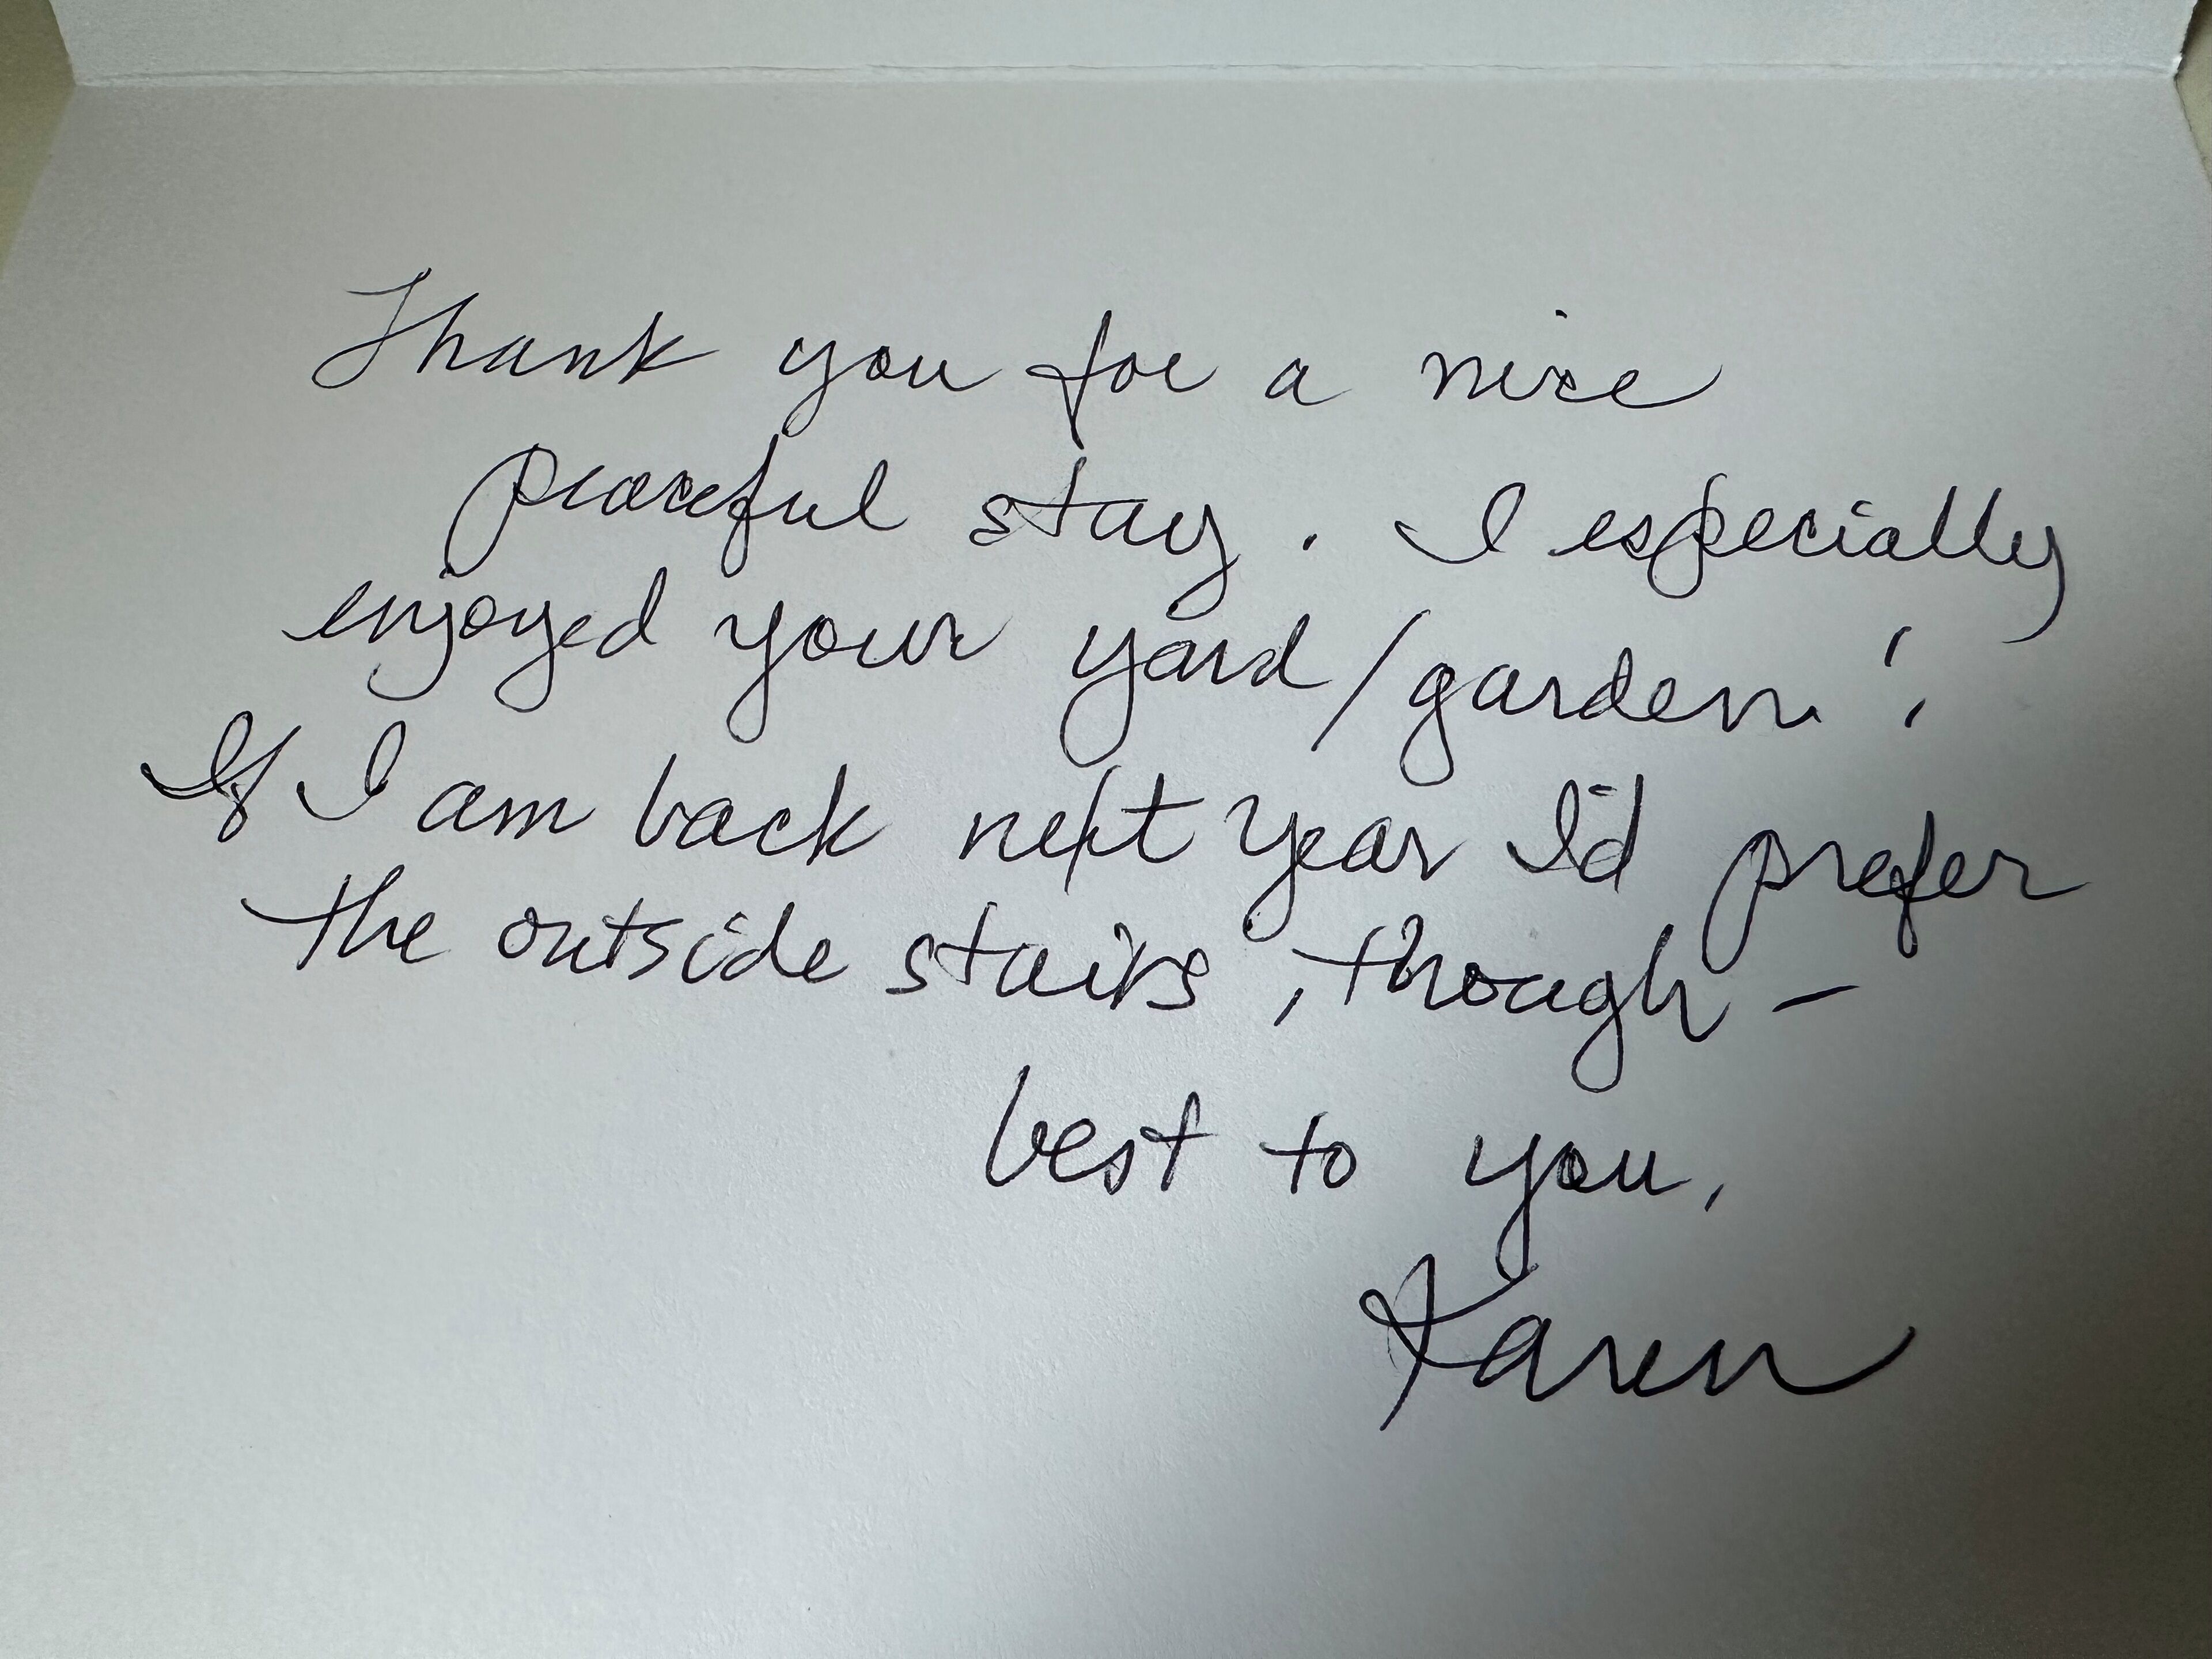 Thank you for a nice
peaceful stay. I especially
enjoyed your yard/garden!
If I am back next year I'd prefer
the outside stairs, though –
best to you,
Karen